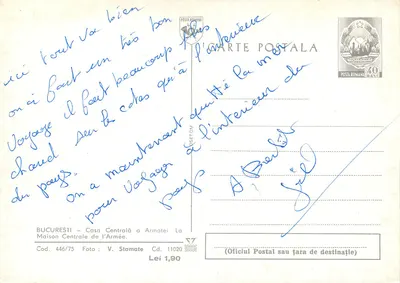 ici tout va bien
on a faut un très bon
Voyage il faut beaucoup plus
chaud sur les cotes qu'à l'interieur
du pays.
on a maintenant quitté la mer
pour voyager à l'interieur du
pays
A Bientôt
CARTE POSTALA
POSTA ROMANA
40
BUCUREȘTI – Casa Centrală a Armatei La
Maison Centrale de l'Armée.
Cod. 446/73 Foto : V. Stamate Cd. 11020
Lei 1,90
(Oficiul Postal sau țara de destinație)